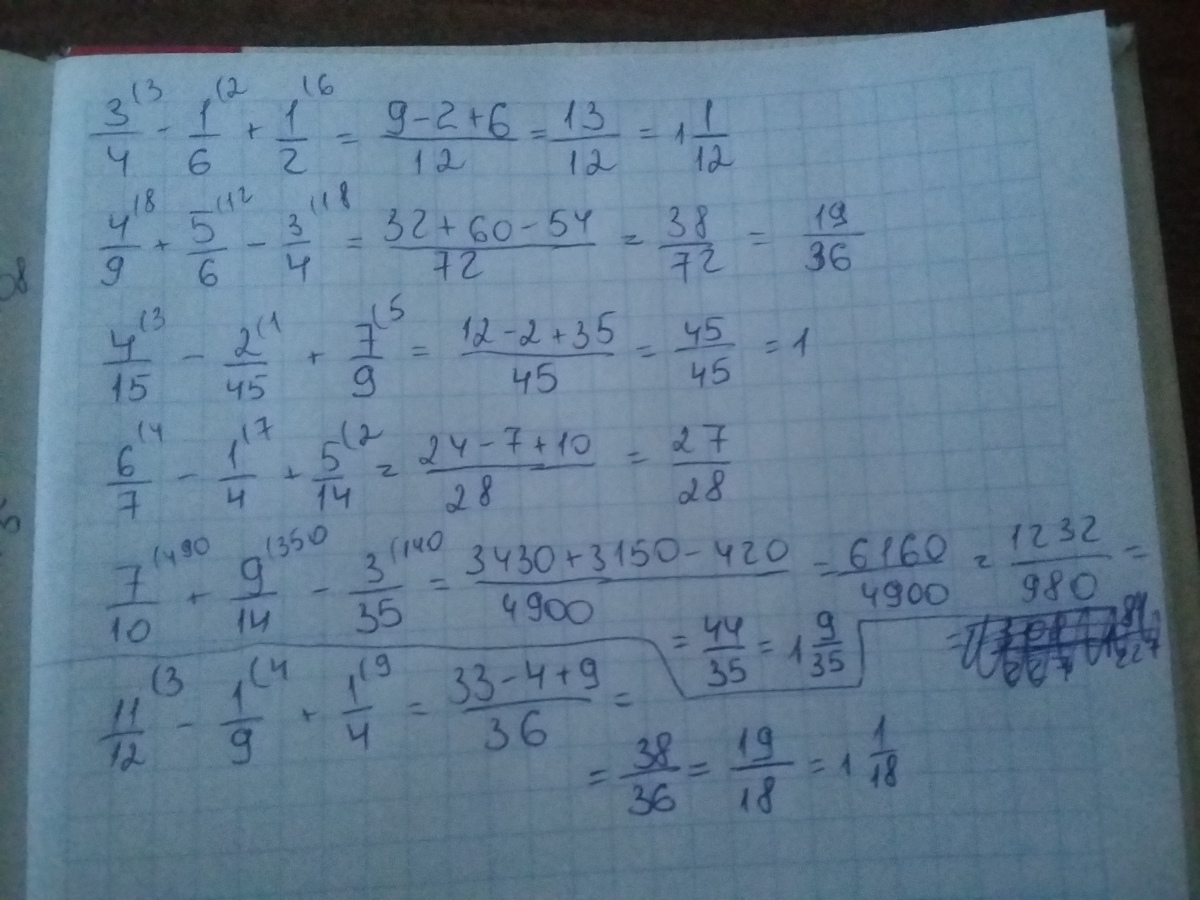 3/4 (3 - 1/6 (2 + 1/2 (6 = (9-2+6)/12 = 13/12 = 1 1/12
4/9 (8 + 5/6 (12 - 3/4 (18 = (32+60-54)/72 = 38/72 = 19/36
4/15 (3 - 2/45 (1 + 7/9 (5 = (12-2+35)/45 = 45/45 = 1
6/7 (4 - 1/4 (7 + 5/14 (2 = (24-7+10)/28 = 27/28
7/10 (490 + 9/14 (350 - 3/35 (140 = (3430+3150-420)/4900 = 6160/4900 = 1232/980 =
= 44/35 = 1 9/35
11/12 (3 - 1/9 (4 + 1/4 (9 = (33-4+9)/36 =
= 38/36 = 19/18 = 1 1/18